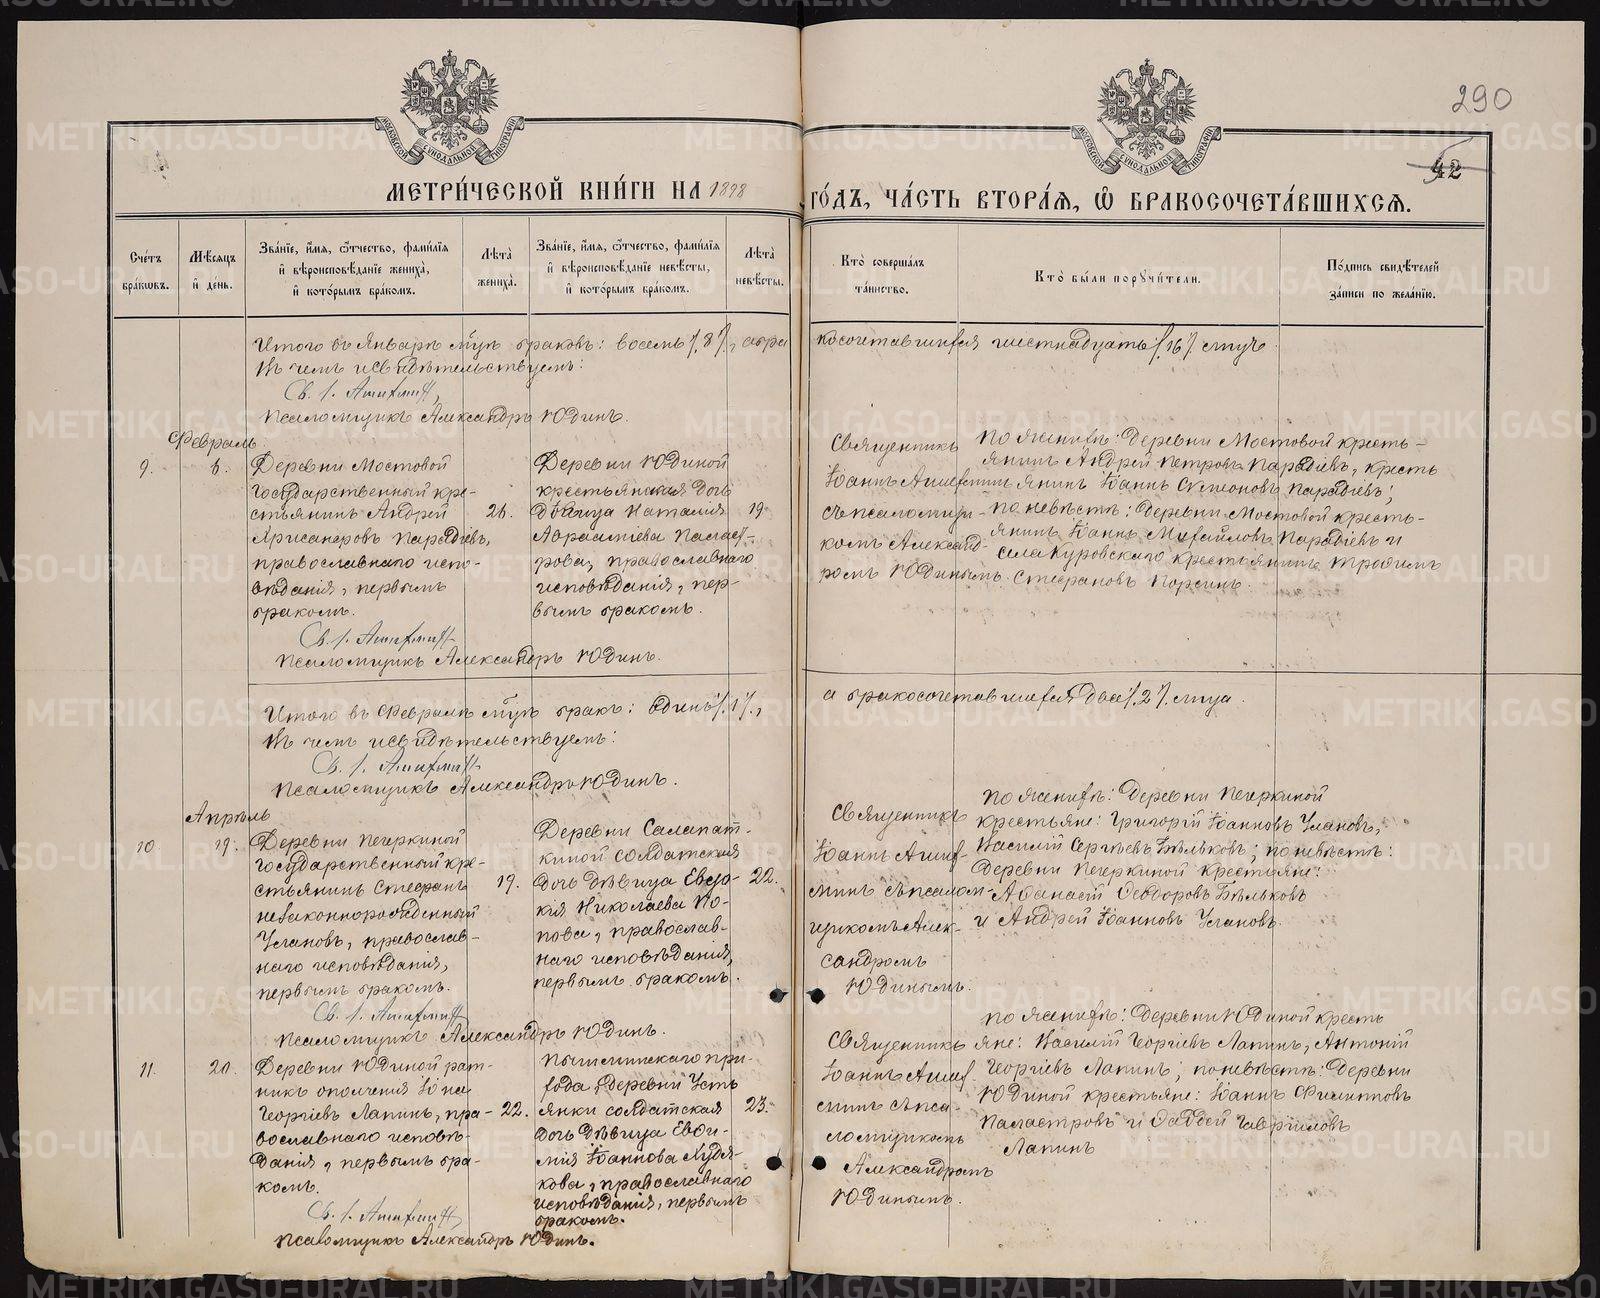 290
42
МЕТРИ́ЧЕСКОЙ КНИ́ГИ НА 1898 ГО́ДЪ, ЧА́СТЬ ВТОРА́Я, Ѡ БРАКОСОЧЕТА́ВШИХСЯ.
Сче́тъ бра́ковъ.
Мѣ́сяцъ и́ де́нь.
Зва́нїе, и́мя, ѻ́тчество, фами́лїя и́ вѣроисповѣ́данїе жениха̀, и́ кото́рымъ бра́комъ.
Лѣ́та жениха̀.
Зва́нїе, и́мя, ѻ́тчество, фами́лїя и́ вѣроисповѣ́данїе невѣ́сты, и́ кото́рымъ бра́комъ.
Лѣ́та невѣ́сты.
Кто̀ соверша́лъ та́инство.
Кто̀ бы́ли порꙋчи́тели.
По́дпись свидѣ́телей за́писи по жела́нїю.
Итого въ Январѣ мцѣ браковъ: восемь /8/, а бра
косочетавшихся шестнадцать /16/ лицъ.
Въ чемъ и свидѣтельствуемъ:
Св. І.
Псаломщикъ Александръ Юдинъ.
Февраль
9.
6.
Деревни Мостовой
государственный кре-
стьянинъ Андрей
Парадіевъ,
православнаго испо-
вѣданія, первымъ
бракомъ.
26.
Деревни Юдиной
крестьянская дочь
дѣвица Наталія
Авраамиева Паласт-
рова, православнаго
исповѣданія, пер-
вымъ бракомъ.
19
Священникъ
Іоаннъ
съ псаломщи-
комъ Александ-
ромъ Юдинымъ.
По женихѣ: Деревни Мостовой кресть-
янинъ Андрей Петровъ Парадіевъ, кресть
янинъ Іоаннъ Симеоновъ Парадіевъ;
по невѣстѣ: Деревни Мостовой кресть-
янинъ Іоаннъ Михайловъ Парадіевъ и
села Куровскаго крестьянинъ Трофимъ
Стефановъ
Св. І.
Псаломщикъ Александръ Юдинъ.
Итого въ Февралѣ мцѣ бракъ: одинъ /1/,
а бракосочетавшихся два /2/ лица.
Въ чемъ и свидѣтельствуемъ:
Св. І.
Псаломщикъ Александръ Юдинъ.
Апрѣль
10
19.
Деревни Печеркиной
государственный кре-
стьянинъ Стефанъ
незаконнорожденный
Улановъ, православ-
наго исповѣданія,
первымъ бракомъ.
19.
Деревни Салапат-
киной солдатская
дочь дѣвица Евдо-
кія Николаева По-
пова, православ-
наго исповѣданія,
первымъ бракомъ.
22.
Священникъ
Іоаннъ
съ псалом-
щикомъ Алек-
сандромъ
Юдинымъ.
По женихѣ: Деревни Печеркиной
крестьяне: Григорій Іоанновъ Улановъ,
Василій Сергѣевъ Бѣльковъ; по невѣстѣ:
Деревни Печеркиной крестьяне:
Аѳанасій Ѳеодоровъ Бѣльковъ
и Андрей Іоанновъ Улановъ.
Св. І.
Псаломщикъ Александръ Юдинъ.
11.
20.
Деревни Юдиной рат-
никъ ополченія Іона
Георгіевъ Лапинъ, пра-
вославнаго исповѣ-
данія, первымъ бра-
комъ.
22.
Пышминскаго при-
хода, деревни Усть
янки солдатская
дочь дѣвица Евфи-
мія Іоаннова Худя-
кова, православнаго
исповѣданія, первымъ
бракомъ.
23.
Священникъ
Іоаннъ
съ пса-
ломщикомъ
Александромъ
Юдинымъ.
По женихѣ: Деревни Юдиной кресть
яне: Василій Георгіевъ Лапинъ, Антоній
Георгіевъ Лапинъ; по невѣстѣ: Деревни
Юдиной крестьяне: Іоаннъ Филипповъ
Паластровъ и Ѳаддей Гавріиловъ
Лапинъ
Св. І.
Псаломщикъ Александръ Юдинъ.
METRIKI.GASO-URAL.RU